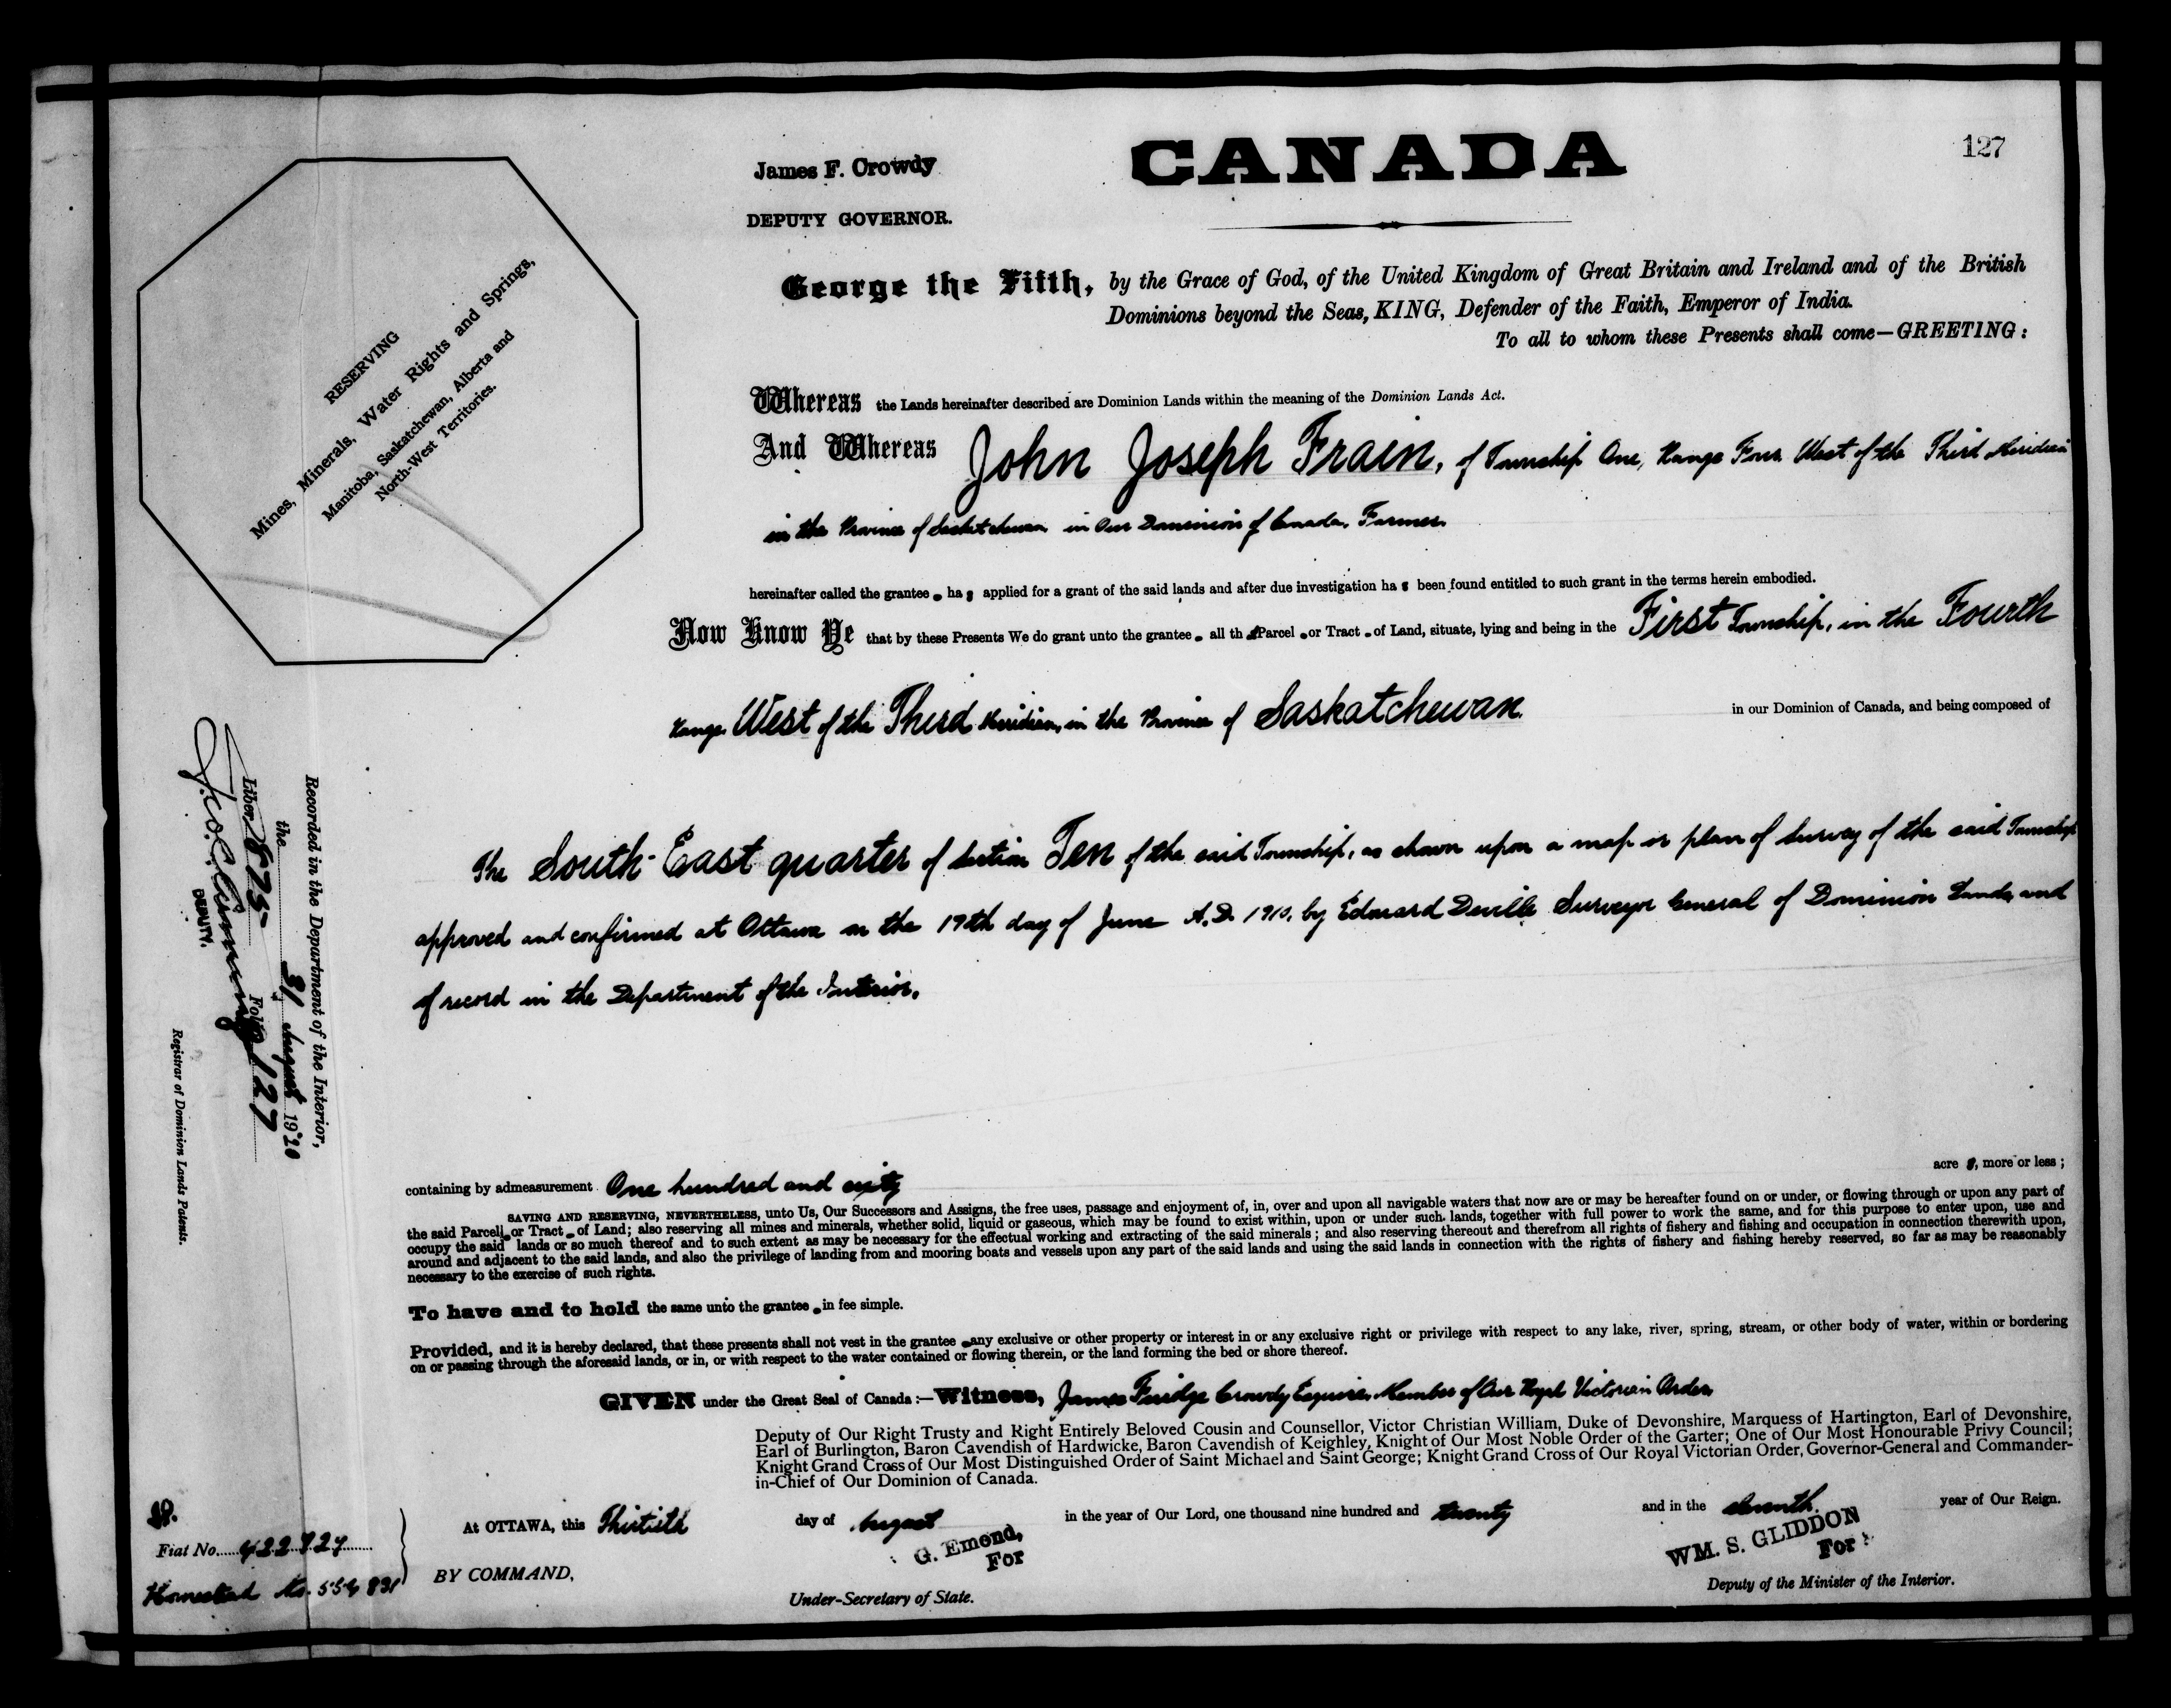 127
CANADA
James F. Crowdy
DEPUTY GOVERNOR.
George the Fifth, by the Grace of God, of the United Kingdom of Great Britain and Ireland and of the British
Dominions beyond the Seas, KING, Defender of the Faith, Emperor of India.
To all to whom these Presents shall come—GREETING:
RESERVING
Mines, Minerals, Water Rights and Springs,
Manitoba, Saskatchewan, Alberta and
North-West Territories.
Whereas the Lands hereinafter described are Dominion Lands within the meaning of the Dominion Lands Act.
And Whereas John Joseph Frain, of Township One, Range Four West of the Third Meridian
in the Province of Saskatchewan in Our Dominion of Canada, Farmer
hereinafter called the grantee has applied for a grant of the said lands and after due investigation has been found entitled to such grant in the terms herein embodied.
Now Know Ye that by these Presents We do grant unto the grantee all that Parcel or Tract of Land, situate, lying and being in the First Township, in the Fourth
Range West of the Third Meridian, in the Province of Saskatchewan. in our Dominion of Canada, and being composed of
The South East quarter of Section Ten of the said Township, as shown upon a map or plan of Survey of the said Township
approved and confirmed at Ottawa on the 19th day of June A.D. 1910, by Edouard Deville Surveyor General of Dominion Lands, and
of record in the Department of the Interior.
Recorded in the Department of the Interior,
the 31 August 1920
Liber 875 Folio 127
DEPUTY.
Registrar of Dominion Lands Patents.
containing by admeasurement One hundred and sixty acres, more or less;
SAVING AND RESERVING, NEVERTHELESS, unto Us, Our Successors and Assigns, the free uses, passage and enjoyment of, in, over and upon all navigable waters that now are or may be hereafter found on or under, or flowing through or upon any part of
the said Parcel or Tract of Land; also reserving all mines and minerals, whether solid, liquid or gaseous, which may be found to exist within, upon or under such lands, together with full power to work the same, and for this purpose to enter upon, use and
occupy the said lands or so much thereof and to such extent as may be necessary for the effectual working and extracting of the said minerals; and also reserving thereout and therefrom all rights of fishery and fishing and occupation in connection therewith upon,
around and adjacent to the said lands, and also the privilege of landing from and mooring boats and vessels upon any part of the said lands and using the said lands in connection with the rights of fishery and fishing hereby reserved, so far as may be reasonably
necessary to the exercise of such rights.
To have and to hold the same unto the grantee in fee simple.
Provided, and it is hereby declared, that these presents shall not vest in the grantee any exclusive or other property or interest in or any exclusive right or privilege with respect to any lake, river, spring, stream, or other body of water, within or bordering
on or passing through the aforesaid lands, or in, or with respect to the water contained or flowing therein, or the land forming the bed or shore thereof.
GIVEN under the Great Seal of Canada:—Witness, James Crowdy Esquire, Member of Our Royal Victorian Order,
Deputy of Our Right Trusty and Right Entirely Beloved Cousin and Counsellor, Victor Christian William, Duke of Devonshire, Marquess of Hartington, Earl of Devonshire,
Earl of Burlington, Baron Cavendish of Hardwicke, Baron Cavendish of Keighley, Knight of Our Most Noble Order of the Garter; One of Our Most Honourable Privy Council;
Knight Grand Cross of Our Most Distinguished Order of Saint Michael and Saint George; Knight Grand Cross of Our Royal Victorian Order, Governor-General and Commander-
in-Chief of Our Dominion of Canada.
At OTTAWA, this Thirtieth day of August in the year of Our Lord, one thousand nine hundred and twenty and in the eleventh year of Our Reign.
Fiat No.
Homestead No.
BY COMMAND,
G. Emond,
For
Under-Secretary of State.
WM. S. GLIDDON
For
Deputy of the Minister of the Interior.